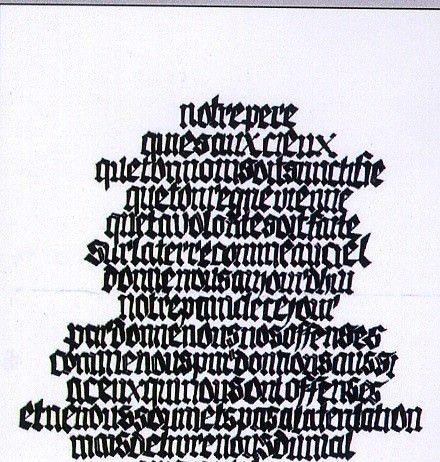 notrepere
quiesauxcieux
quetonnomsoitsanctifie
quetonregnevienne
quetavolontesoitfaite
surlaterrecommeauciel
donnenousaujourdhui
notrepaindecejour
pardonnenousnosoffenses
commenouspardonnonsaussi
aceuxquinousontoffenses
etnenoussoumetspasalatentation
maisdelivrenousdumal